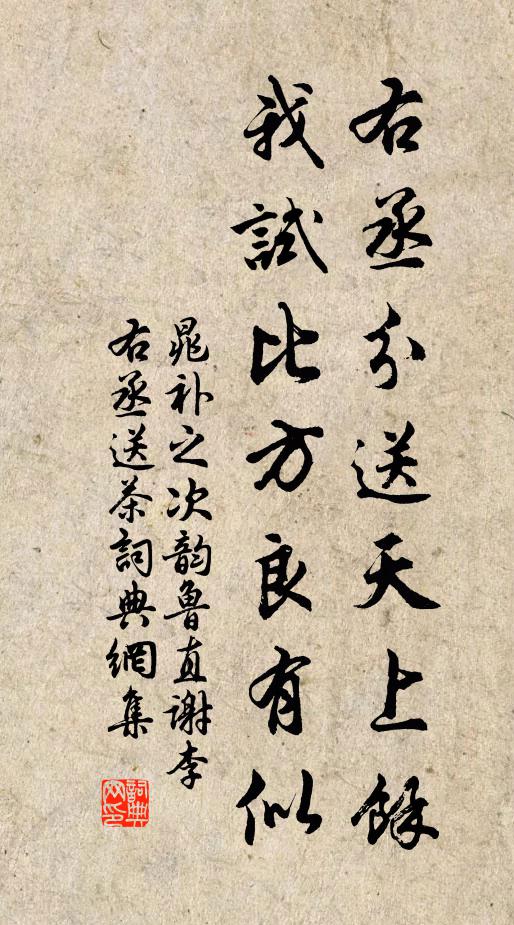 右丞分送天上餘
我試比方良有似
晁补之次韵魯直謝李
右丞送茶詞典網集
詞典网印